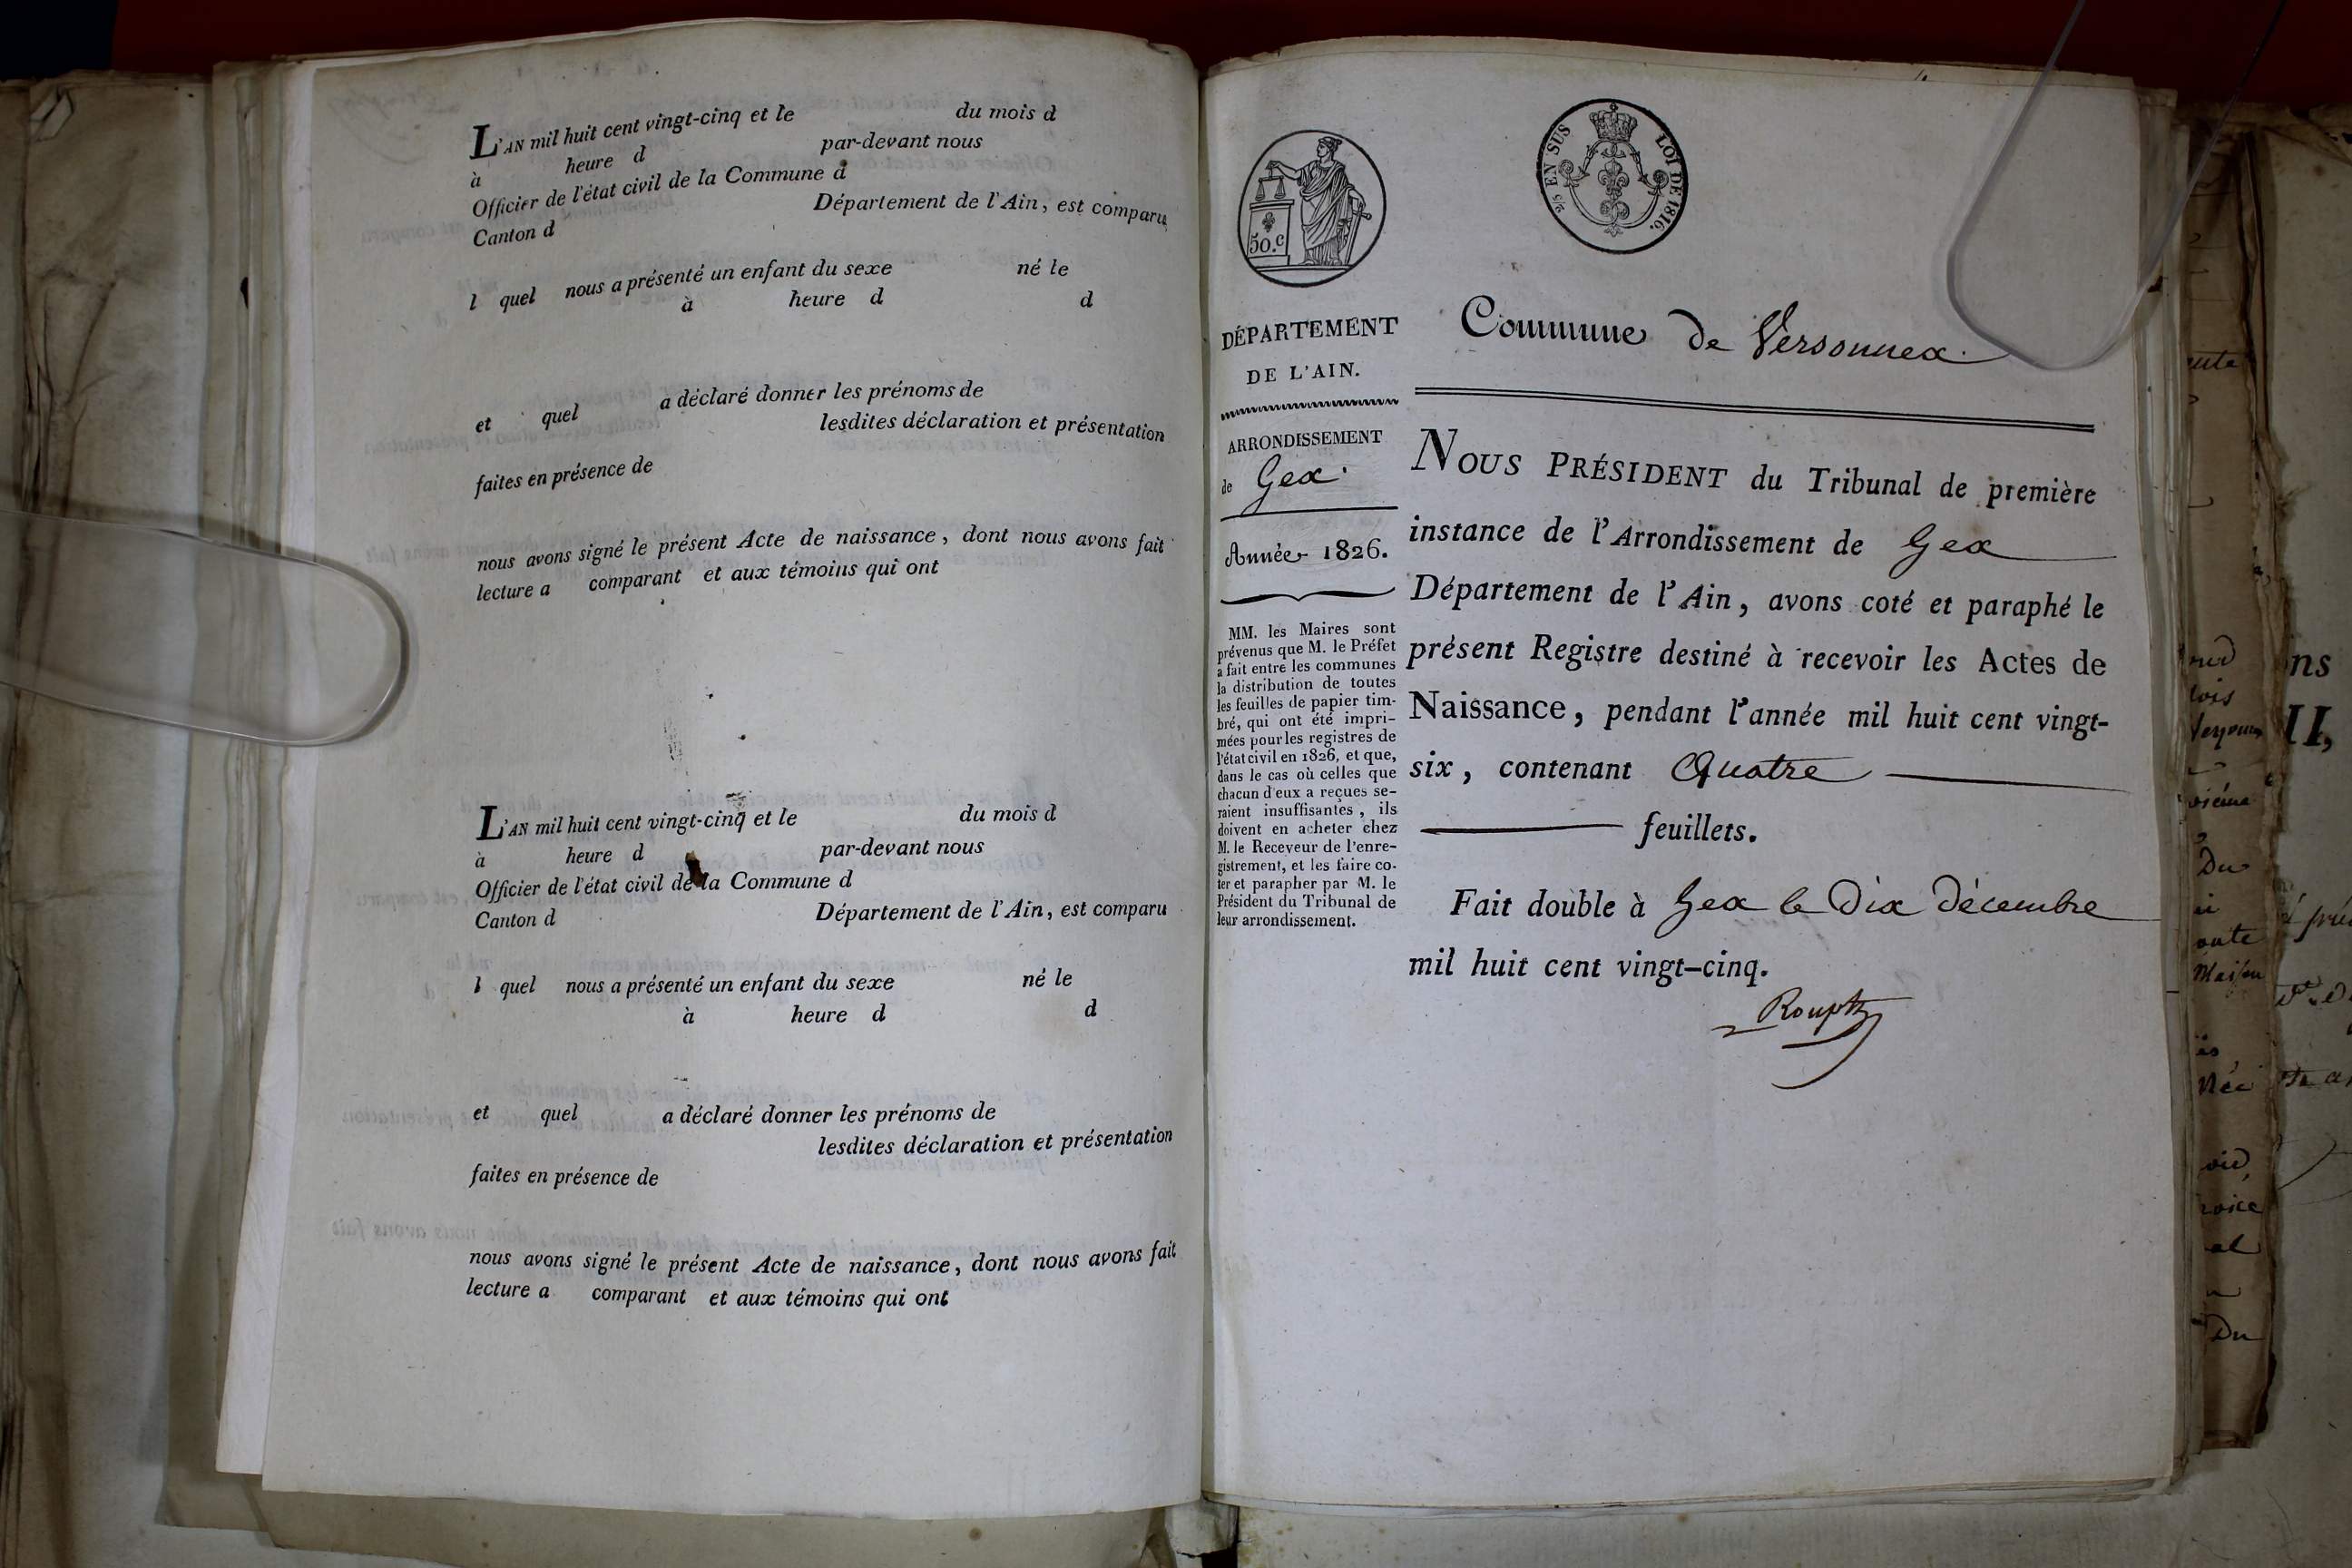 L'AN mil huit cent vingt-cinq et le du mois d
à heure d par-devant nous
Officier de l'état civil de la Commune d
Canton d Département de l'Ain, est comparu
l quel nous a présenté un enfant du sexe né le
à heure d d
et quel a déclaré donner les prénoms de
lesdites déclaration et présentation
faites en présence de
nous avons signé le présent Acte de naissance, dont nous avons fait
lecture a comparant et aux témoins qui ont
L'AN mil huit cent vingt-cinq et le du mois d
à heure d par-devant nous
Officier de l'état civil de la Commune d
Canton d Département de l'Ain, est comparu
l quel nous a présenté un enfant du sexe né le
à heure d d
et quel a déclaré donner les prénoms de
lesdites déclaration et présentation
faites en présence de
nous avons signé le présent Acte de naissance, dont nous avons fait
lecture a comparant et aux témoins qui ont
50.c
2/5 EN SUS LOI DE 1816.
DÉPARTEMENT
DE L'AIN.
ARRONDISSEMENT
de Gex.
Année 1826.
MM. les Maires sont
prévenus que M. le Préfet
a fait entre les communes
la distribution de toutes
les feuilles de papier tim-
bré, qui ont été impri-
mées pour les registres de
l'état civil en 1826, et que,
dans le cas où celles que
chacun d'eux a reçues se-
raient insuffisantes, ils
doivent en acheter chez
M. le Receveur de l'enre-
gistrement, et les faire co-
ter et parapher par M. le
Président du Tribunal de
leur arrondissement.
Commune de Versonnex.
NOUS PRÉSIDENT du Tribunal de première
instance de l'Arrondissement de Gex
Département de l'Ain, avons coté et paraphé le
présent Registre destiné à recevoir les Actes de
Naissance, pendant l'année mil huit cent vingt-
six, contenant Quatre
feuillets.
Fait double à Gex le Dix décembre
mil huit cent vingt-cinq.